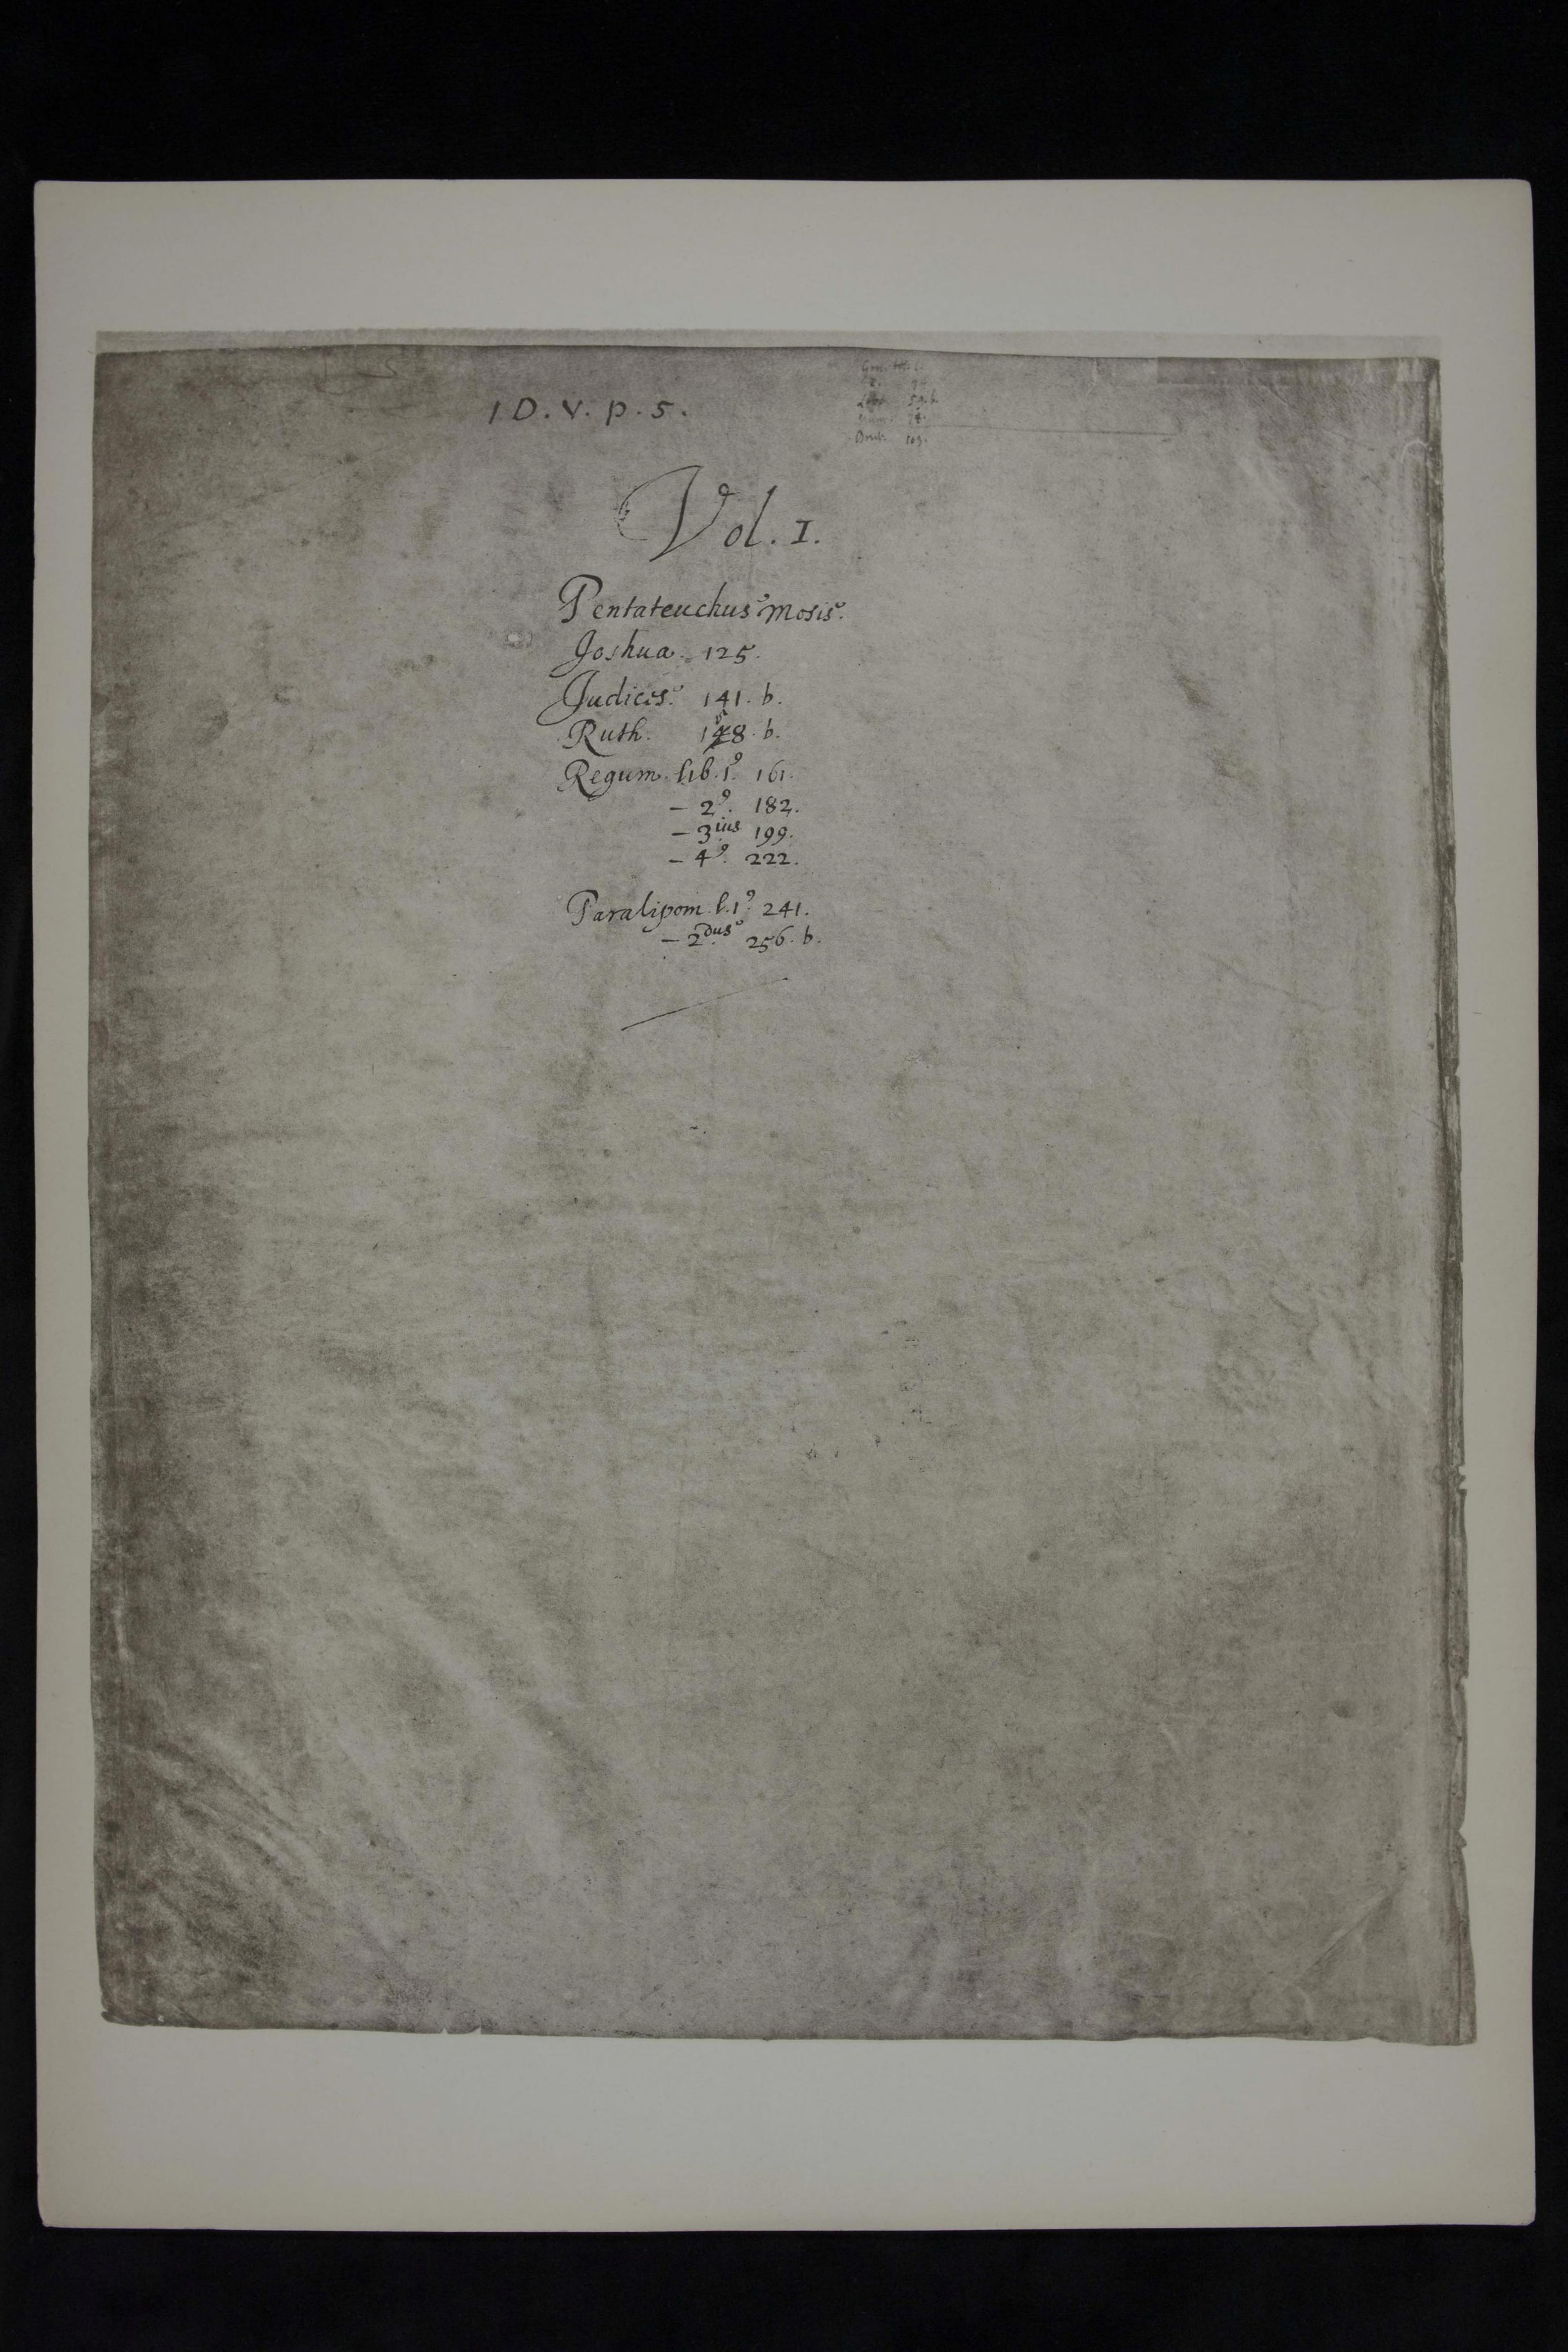 1 D. V. p. 5.
Deut. 109.
Vol. I.
Pentateuchus Mosis.
Joshua. 125.
Judices. 141. b.
Ruth. 158. b.
Regum. lib. 1º. 161.
— 2º. 182.
— 3ius 199.
— 4º. 222.
Paralipom. l. 1º. 241.
— 2dus 256. b.